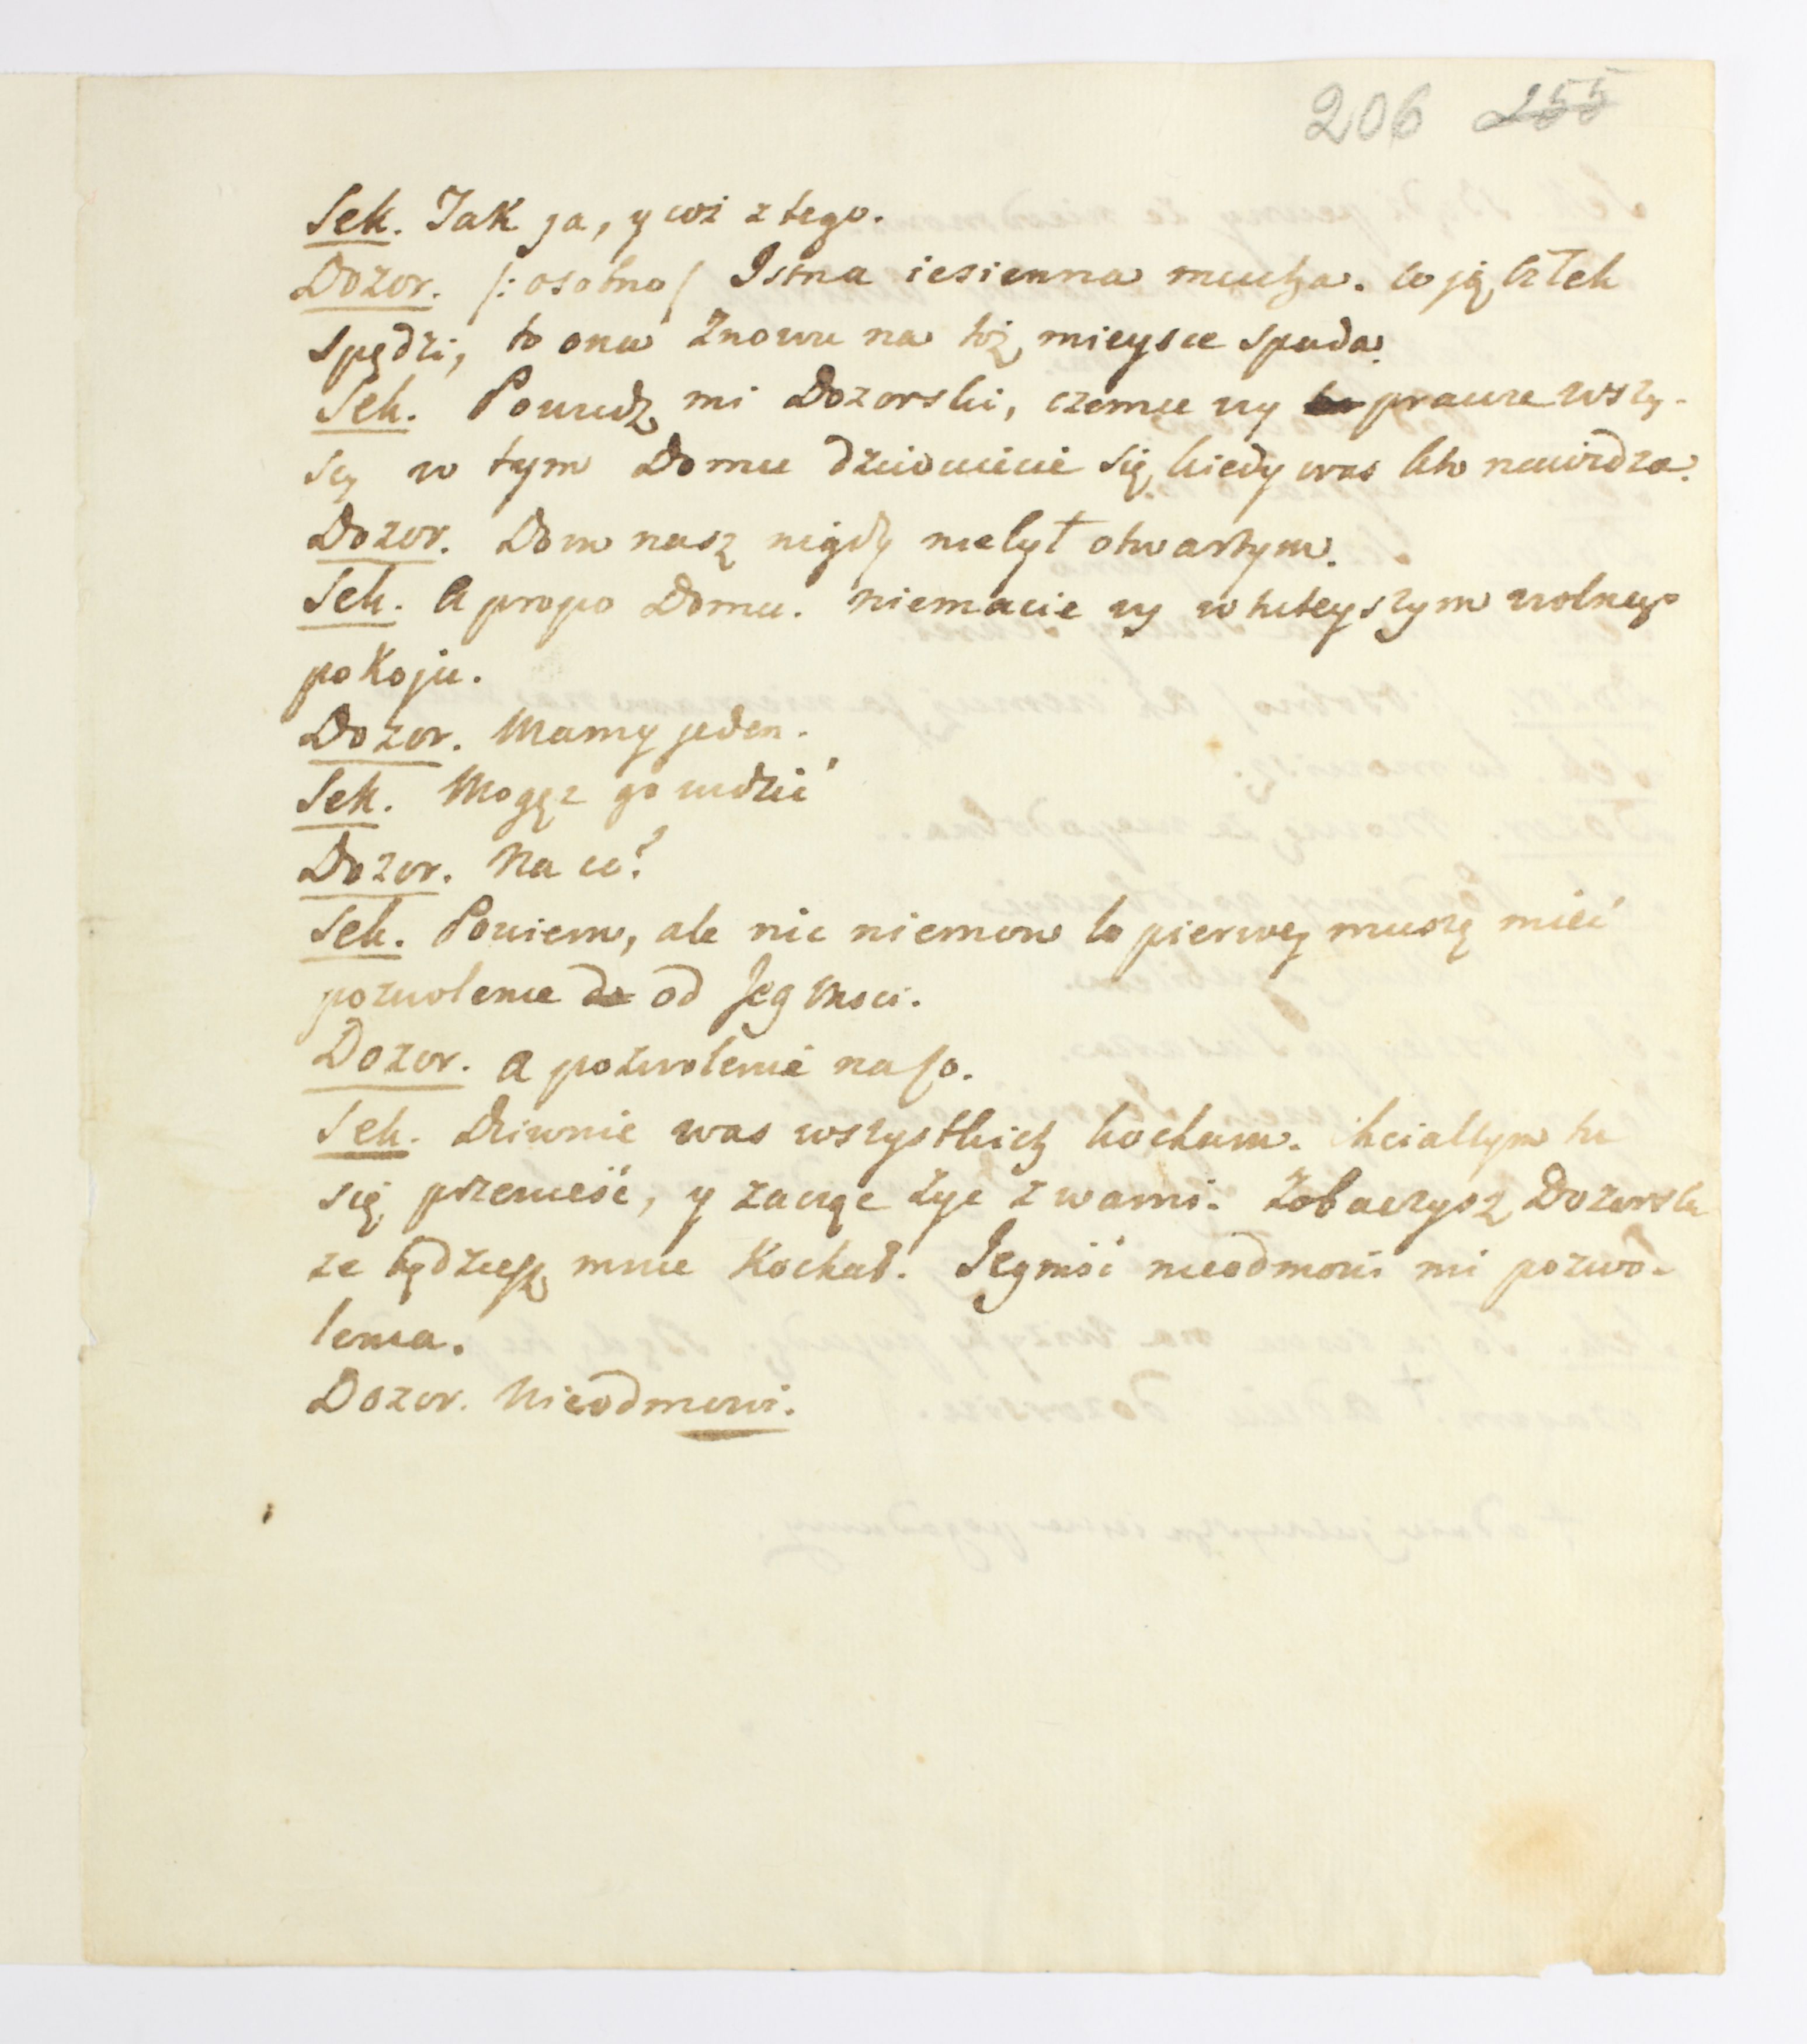 206 255
Sek. Jak ja, y coż z tego.
Dozor. /: osobno / Istna iesienna mucha. Co ją człek
spędzi, to ona znowu na toż mieysce spada.
Sek. Powiedz mi Dozorski, czemu wy prawie wszy-
scy w tym Domu dziwicie się kiedy was kto nawidza.
Dozor. Dom nasz nigdy niebył otwartym.
Sek. A propo Domu. niemacie wy w tuteyszym wolnego
pokoju.
Dozor. Mamy jeden.
Sek. Mogęz go widzić
Dozor. Na co?
Sek. Powiem, ale nic niemow bo pierwey muszę mieć
pozwolenie do od Jeg Mosci.
Dozor. A pozwolenie na co.
Sek. Dziwnie was wszystkich kocham. Chciałbym tu
się przenieść, y zacząc życ z wami. Zobaczysz Dozorski
ze będziesz mnie kochał. Jegmość nieodmowi mi pozwo-
lenia.
Dozor. Nieodmowi.